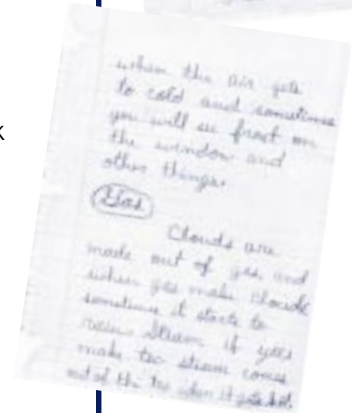 when the air gets
to cold and sometimes
you will see frost on
the window and
other things.
Gas
Clouds are
made out of gas and
when gas make clouds
sometimes it starts to
rain. Steam if you
make tea steam comes
out of the tea when it gets hot.